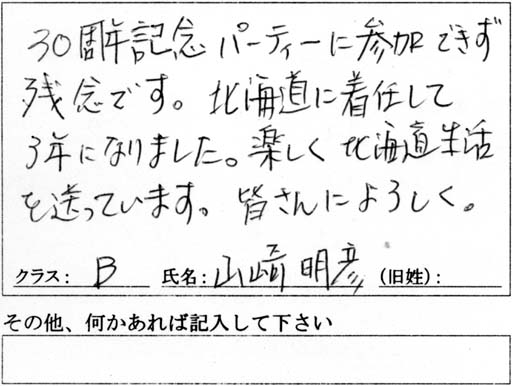 30周年記念パーティーに参加できず
残念です。北海道に着任して
3年になりました。楽しく北海道生活
を送っています。皆さんによろしく。
クラス: B 氏名: 山崎 明彦 (旧姓):
その他、何かあれば記入して下さい